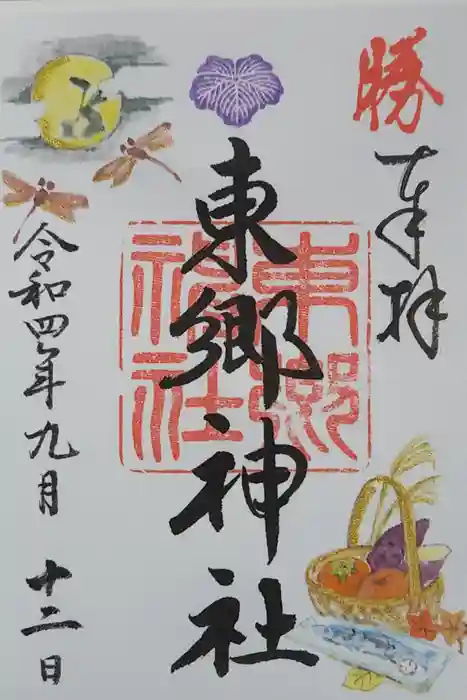 勝
奉拝
東郷神社
東郷神社
令和四年九月十二日